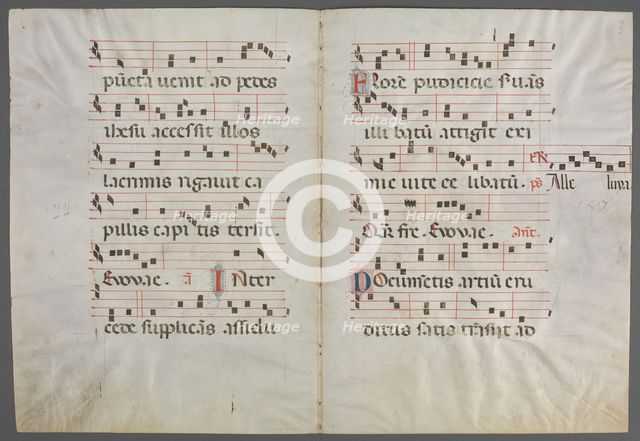 pūcta uenit ad pedes
ihesu accessit illos
lacrimis rigauit ca
pillis capi tis tersit.
Evovae. a INter
cede supplicās assidu
FLore pudicicie suūs
illi batū attigit eri
mie uite ce libatū. ps Alle luya
Evovae. Ant.
DOcumētis artiū eru
ditus satis trāsiit ad